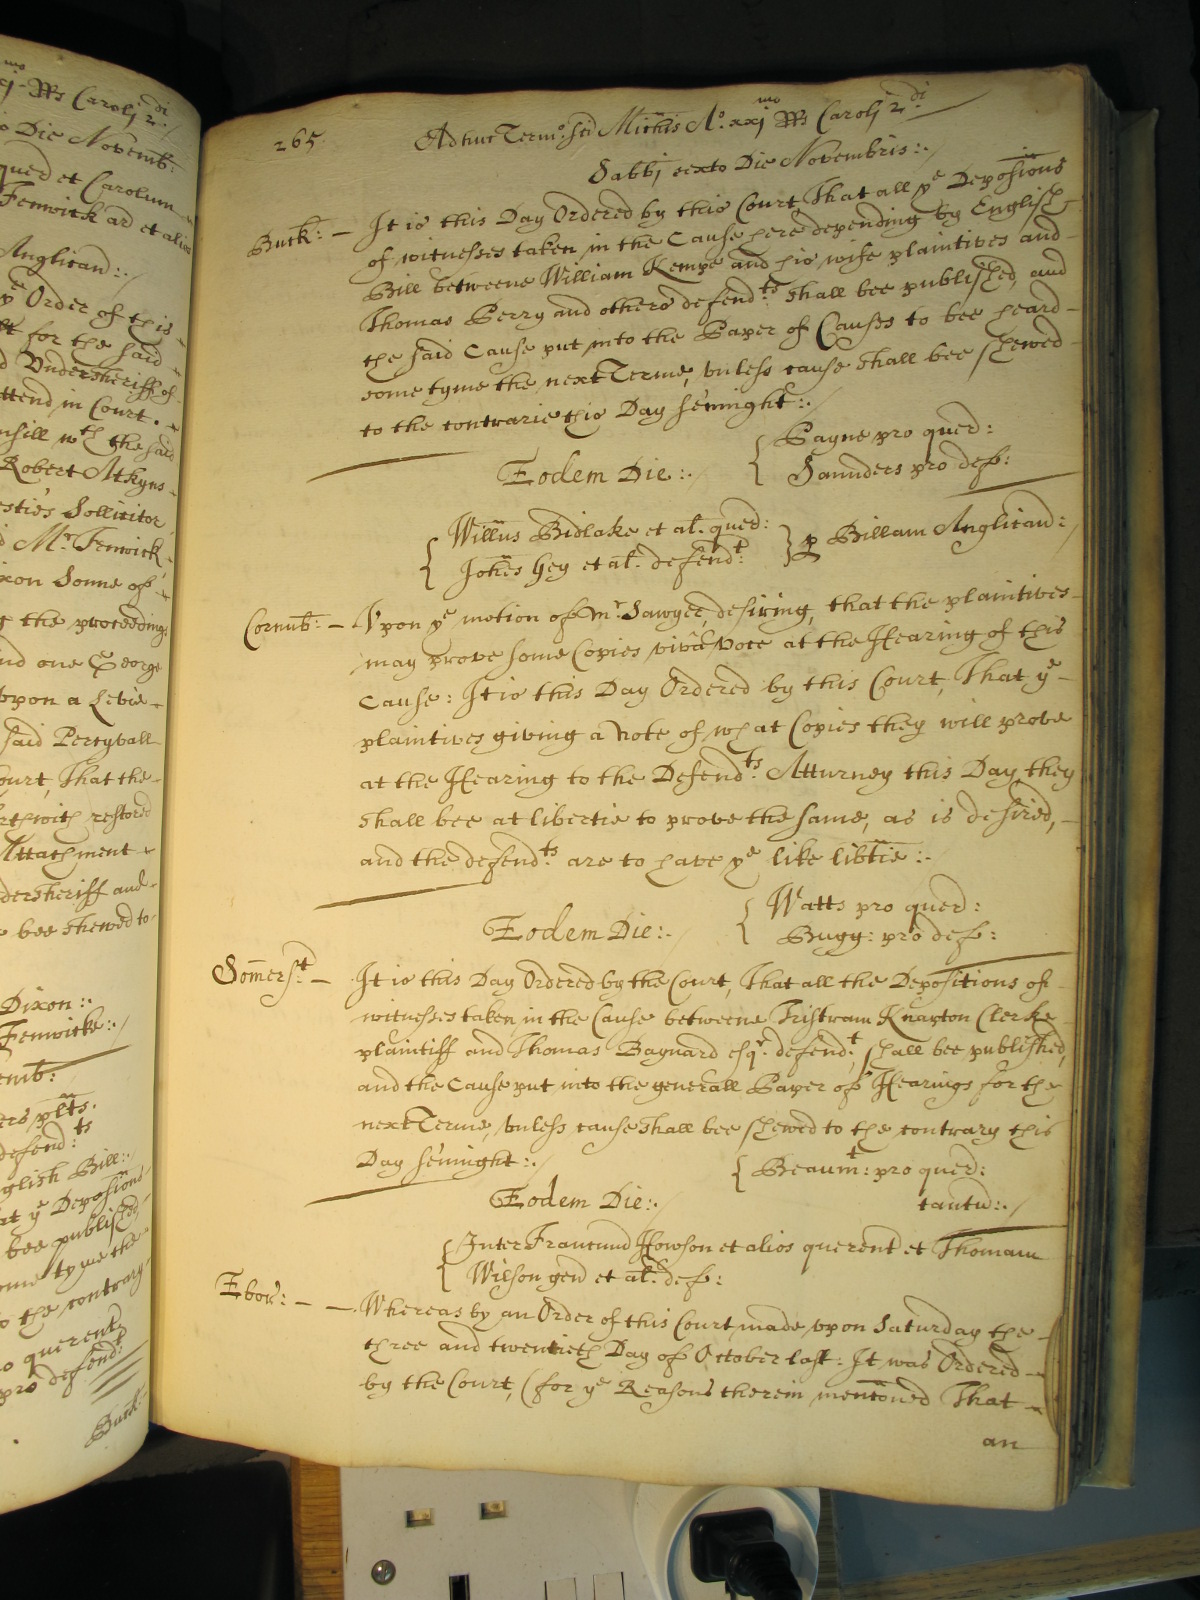 xj Rs Caroli 2di
o Die Novemb:
quer et Carolum
Fenwick ar et alios
Anglican:.
ye Order of this
lt for the said
d Vndersheriff of
ttend in Court.
nsill wth the said
Robert Atkyns
esties Sollicitor
d Mr. Fenwick
ixon Sonne of
g the proceedings
nd one George
vpon a Levie
said Percyvall
ourt, That the
rthwith restored
Attachment
dersheriff and
bee shewed to
Dixon:.
Fenwicke:.
emb:
ers plts.
defend:ts
glish Bill:.
at ye Deposions
bee published
ome tyme the
to the contrary
o querent
pro defend:t
Buck:
265
Adhuc Termo. Sci Michis Ao. xxjmo Rs Caroli 2di
Sabbi sexto Die Novembris:.
Buck: — It is this Day Ordered by this Court That all ye Deposions
of witnesses taken in the Cause here depending by English
Bill betweene William Kempe and his wife plaintives and
Thomas Perry and others defend:ts shall bee published, and
the said Cause put into the Paper of Causes to bee heard
some tyme the next Terme, vnless cause shall bee shewed
to the contrarie this Day sennight:.
{ Payne pro quer:
Saunders pro def:
Eodem Die:.
{ Willus Bidlake et al. quer: } p Billam Anglican:
Johes Hey et al. defend:t
Cornub: — Vpon ye motion of Mr. Sawyer, desiring, that the plaintives
may prove some Copies vivâ voce at the Hearing of this
Cause: It is this Day Ordered by this Court, That ye
plaintives giving a note of what Copies they will prove
at the Hearing to the Defend:ts Atturney this Day, they
shall bee at libertie to prove the same, as is desired,
and the defend:ts are to have ye like libtie:.
{ Watts pro quer:
Bugg: pro def:
Eodem Die:.
Somerst. — It is this Day Ordered by the Court, That all the Depositions of
witnesses taken in the Cause betweene Tristram Knapton Clerke
plaintiff and Thomas Baynard esqr. defend:t shall bee published,
and the Cause put into the generall Paper of Hearings for the
next Terme, vnless cause shall bee shewed to the contrary this
Day sennight:.
{ Beaumt: pro quer:
tantu:.
Eodem Die:.
{ Inter Francum Howson et alios querent et Thomam
Wilson gen et al. def:
Ebor: — — Whereas by an Order of this Court made vpon Saturday the
three and twentieth Day of October last: It was Ordered
by the Court, (for ye Reasons therein mentoned That
an